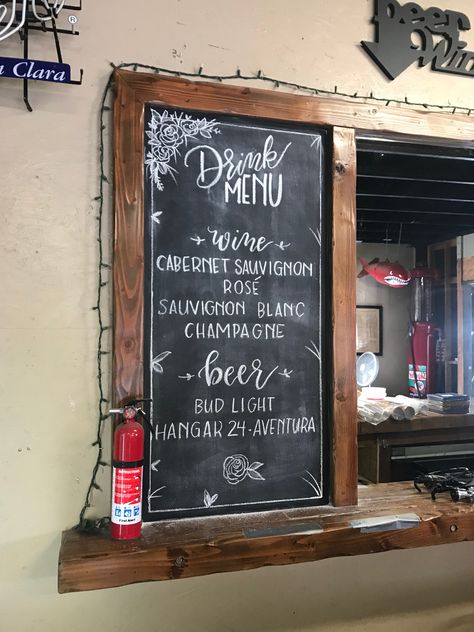 a Clara
Beer
Win
Drink
MENU
wine
CABERNET SAUVIGNON
ROSÉ
SAUVIGNON BLANC
CHAMPAGNE
beer
BUD LIGHT
HANGAR 24-AVENTURA
First Alert